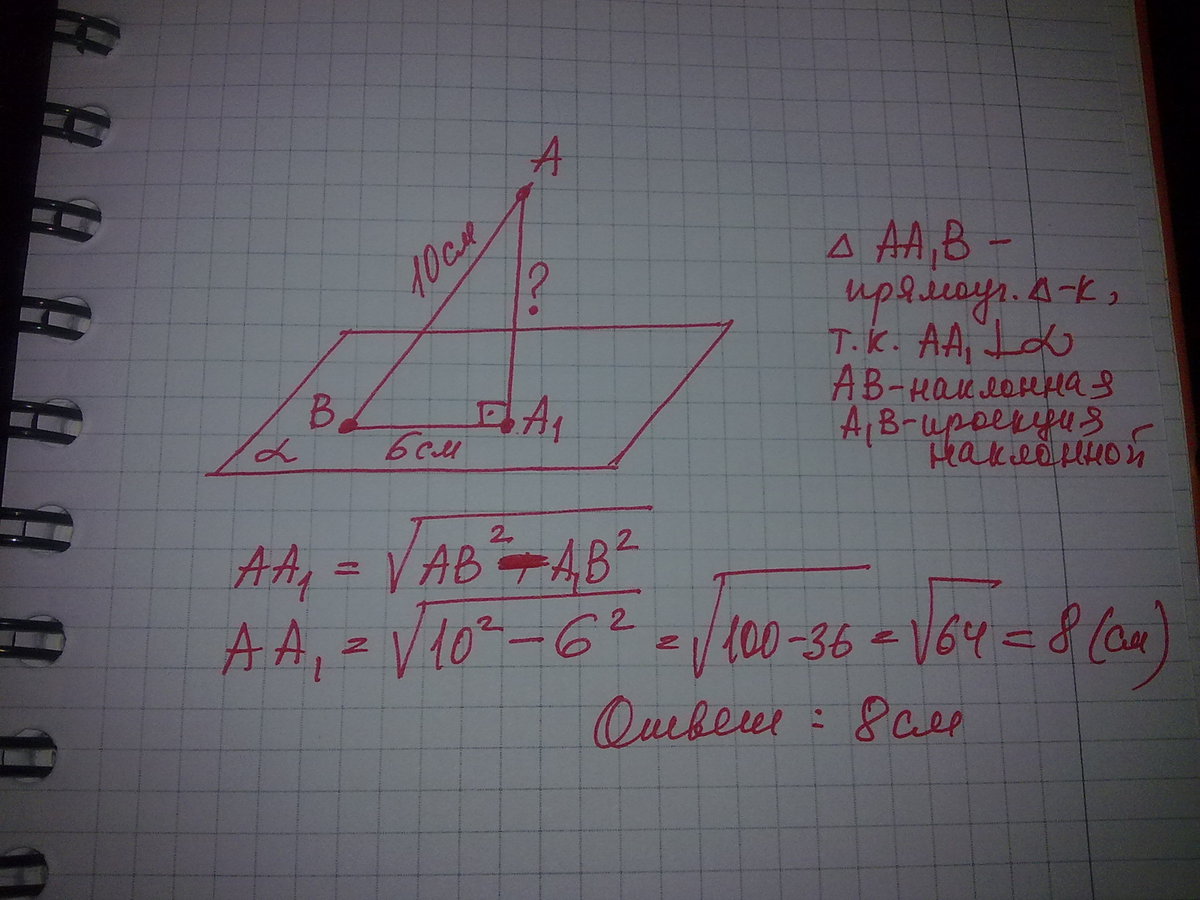 A
10см
?
B
A₁
6см
α
Δ AA₁B –
прямоуг. Δ-к,
т.к. AA₁ ⊥ α
AB-наклонная
A₁B-проекция
наклонной
AA₁ = √(AB² - A₁B²)
AA₁ = √(10² – 6²) = √(100-36) = √64 = 8 (см)
Ответ : 8см